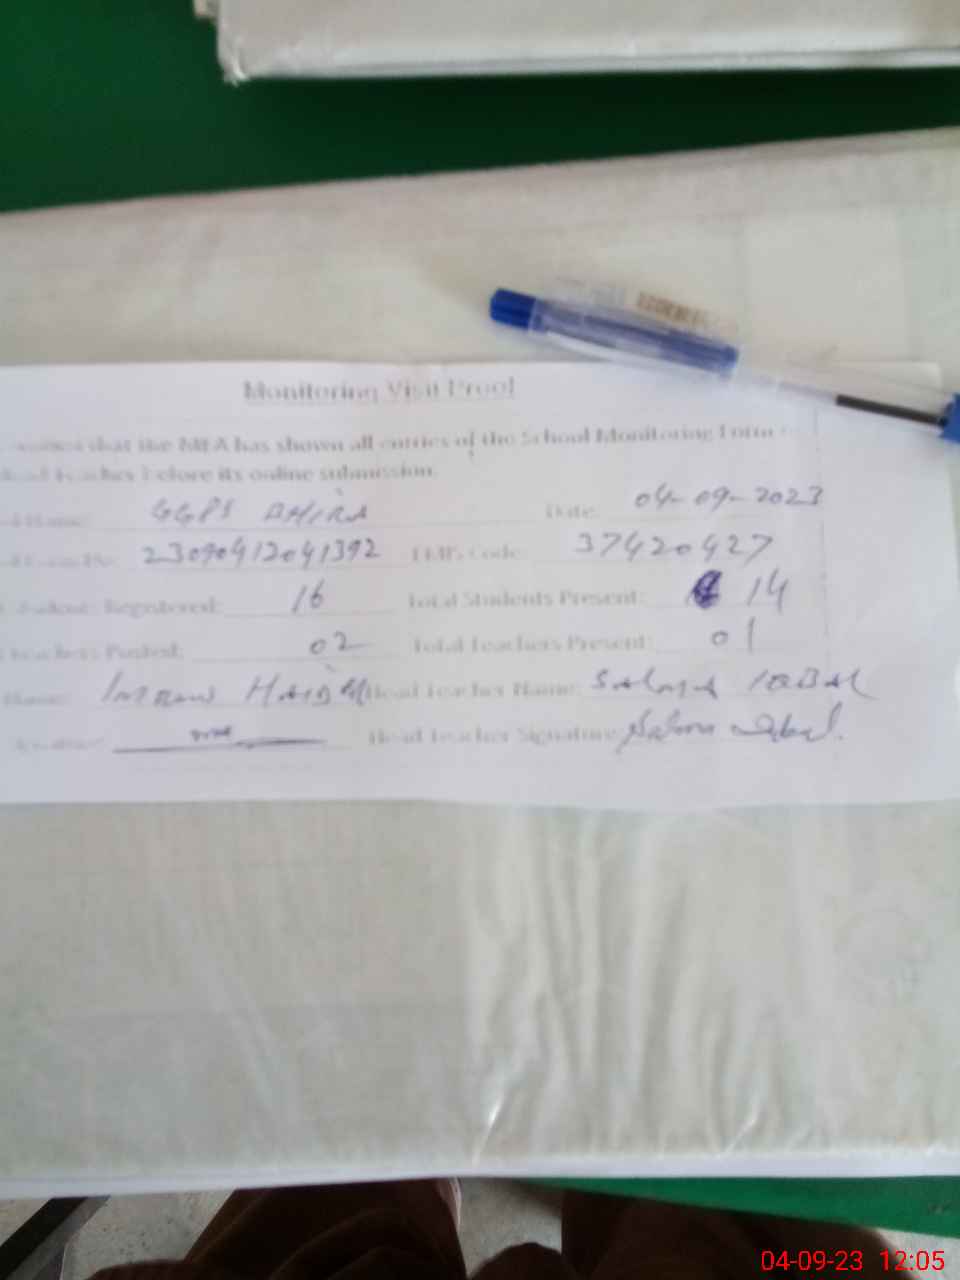 Monitoring Visit Proof
that the MEA has shown all entries of the School Monitoring Form
before its online submission.
Name: GGPS BHIRA Date: 04-09-2023
23090412041392 EMIS Code: 37420427
Students Registered: 16 Total Students Present: 14
Teachers Posted: 02 Total Teachers Present: 01
Name: Imran Haider Head Teacher Name: Salma IQBAL
Head Teacher Signature: Salma Iqbal.
04-09-23 12:05